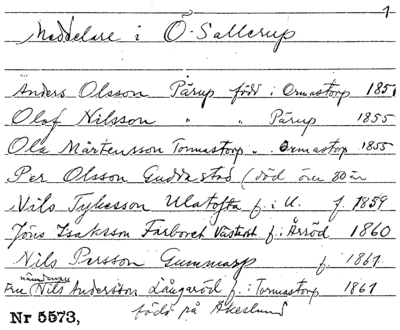 1
Meddelare i Ö. Sallerup
Anders Olsson Pärup född i Ormastorp 1851
Olof Nilsson " " Pärup 1855
Ola Mårtensson Tormastorp " " Ormastorp 1855
Per Olsson Guddastad (död över 80 år
Nils Tykesson Ulatofta f. i U. f. 1859
Jöns Isaksson Farboret Västerst f. i Årröd 1860
Nils Persson Gummarp f. 1861
Fru Nils Andersson Långaröd f. i Tormastorp 1861
född på Åkeslund
Nr 5573,